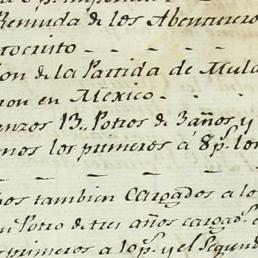 Remuda de los Aventurero
tocuito
on de la Partida de Mula
ron en Mexico.
13. Potros de 3 años, y
nos los primeros à 8 p.s lo
os tambien Cargados a lo
n Potro de tres años cargad
primeros a 10 p.s y el Segun